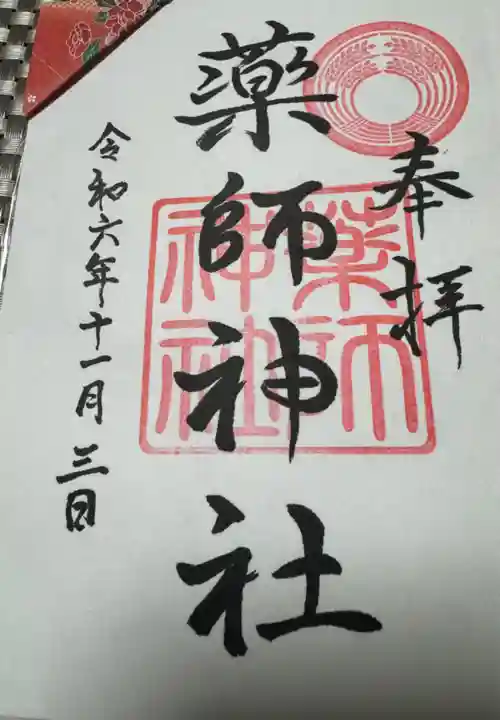 奉拝
薬師神社
薬師神社
令和六年十一月三日